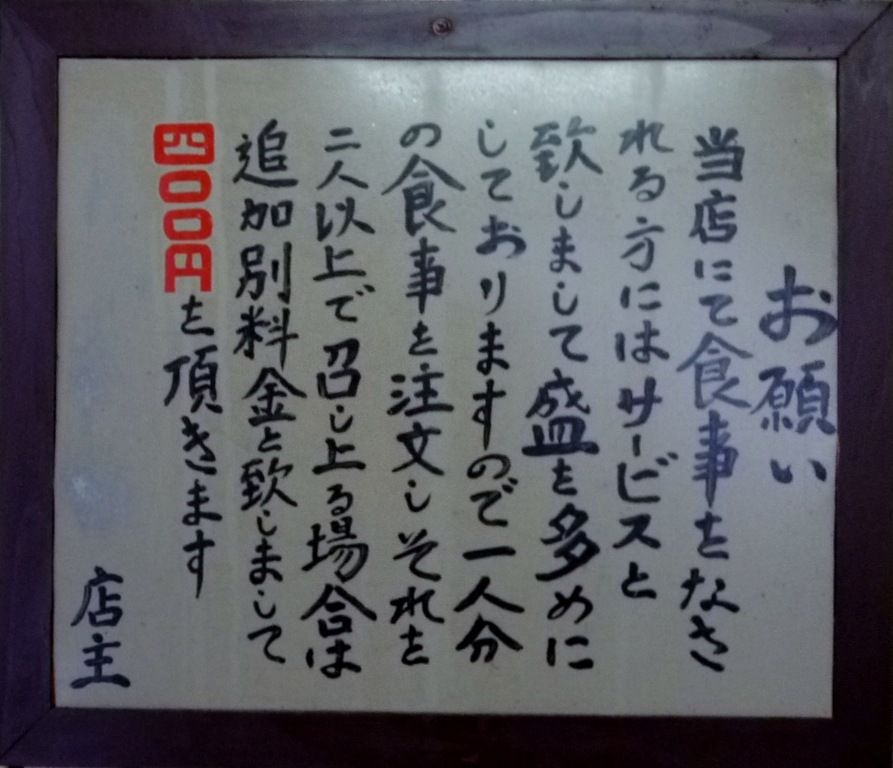 お願い
当店にて食事をなさ
れる方にはサービスと
致しまして盛を多めに
しておりますので一人分
の食事を注文しそれを
二人以上で召し上る場合は
追加別料金と致しまして
四〇〇円を頂きます
店主